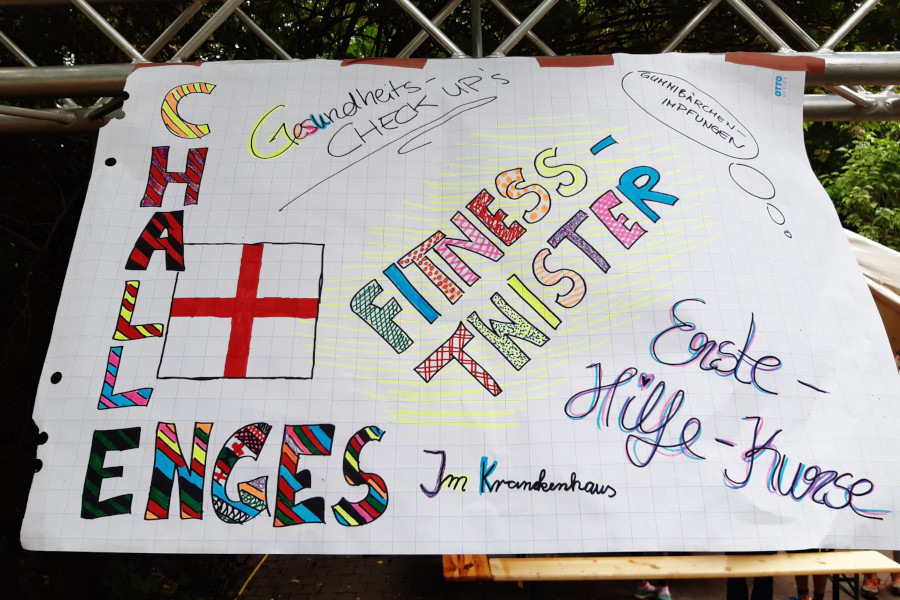 Gesundheits-
CHECK UP'S
GUMMIBÄRCHEN-
IMPFUNGEN
OTTO
CHALLENGES
FITNESS-
TWISTER
Erste-
Hilfe-Kurse
Im Krankenhaus